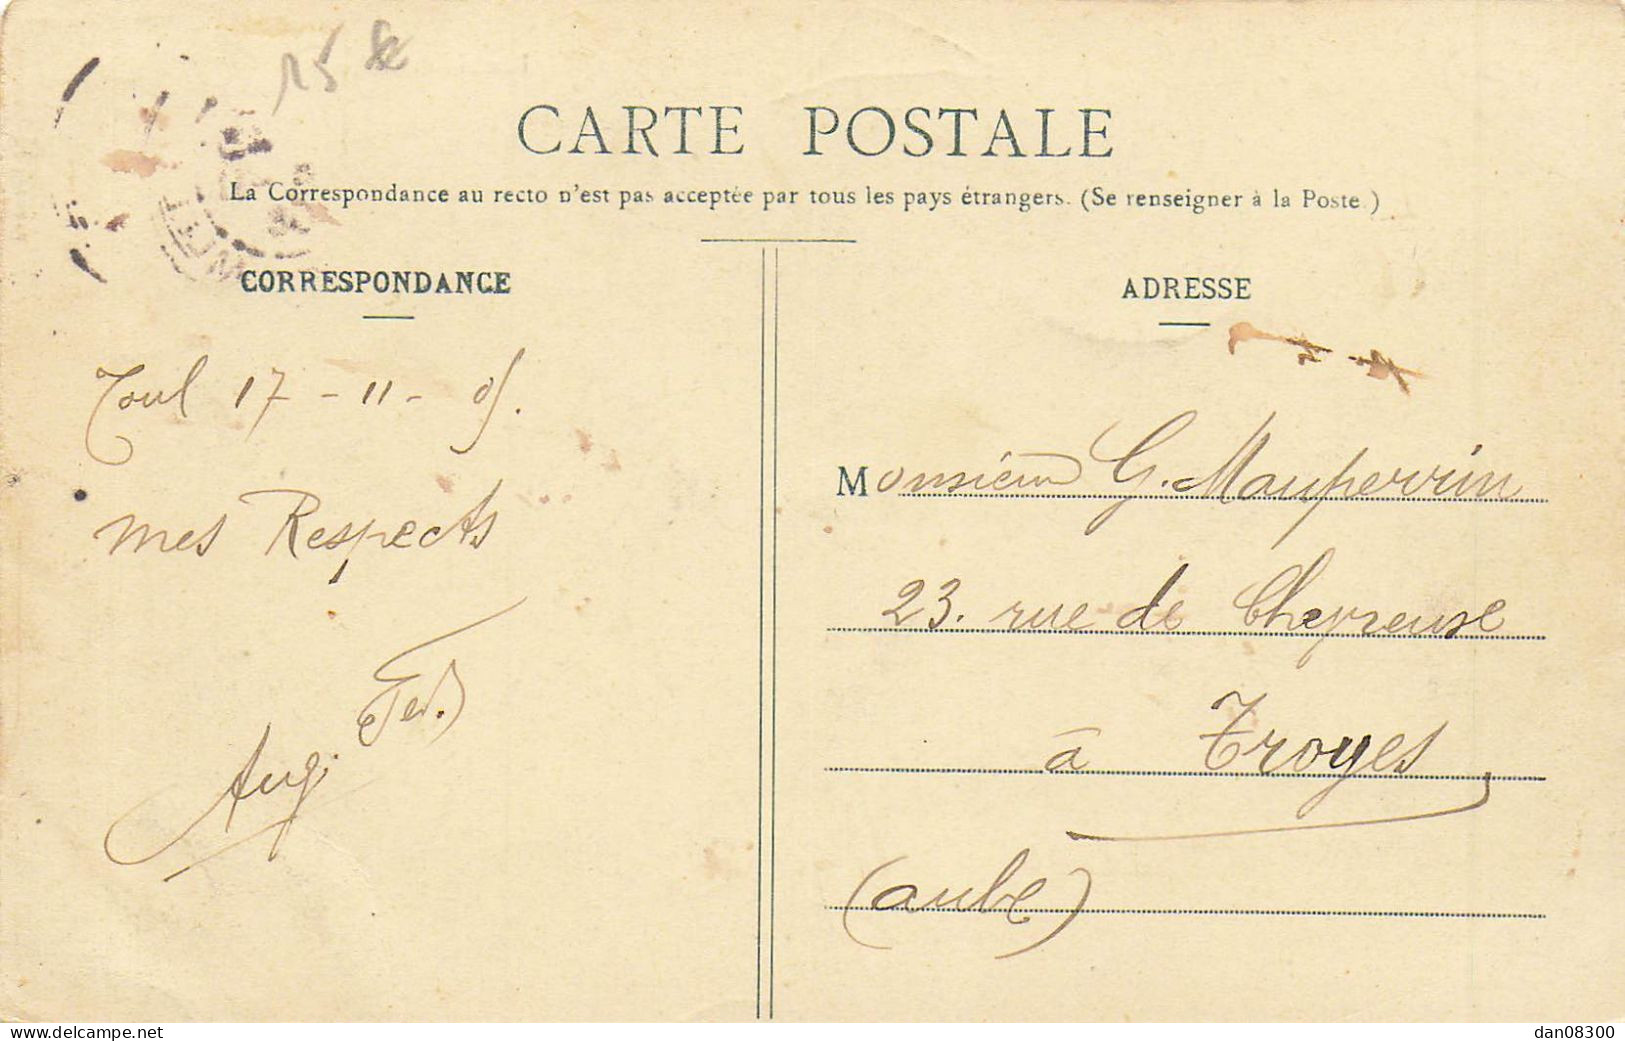 CARTE POSTALE
La Correspondance au recto n'est pas acceptée par tous les pays étrangers. (Se renseigner à la Poste.)
CORRESPONDANCE
Toul 17 - 11 - 05.
mes Respects
ADRESSE
Monsieur G. Mauperrin
23. rue de Chevreuse
à Troyes
(aube)
www.delcampe.net
dan08300